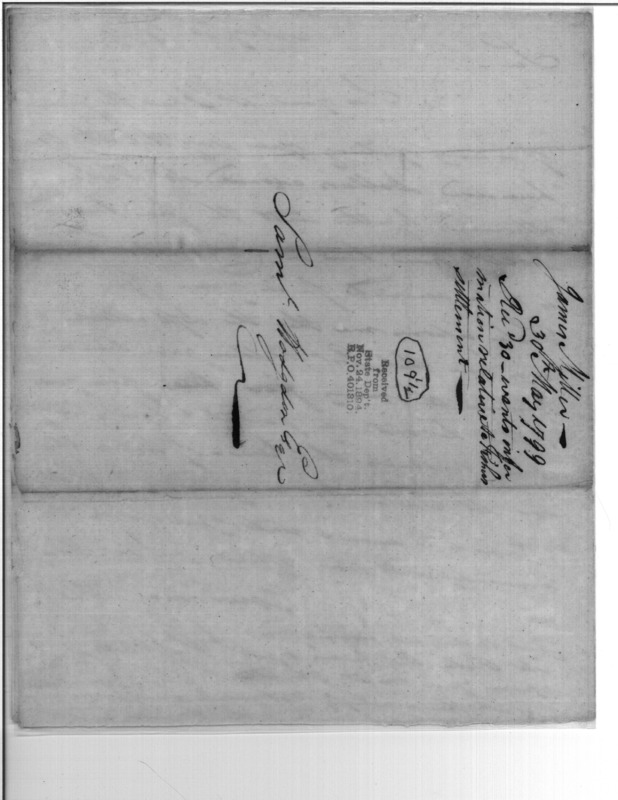 James Miller
30th May 1799
Recd 30 – wants infor
mation relative to
settlement
109½
Received
from
State Dep't.
Nov. 24, 1894.
R.P.O. 401310.
Saml. Hodgdon Esqr